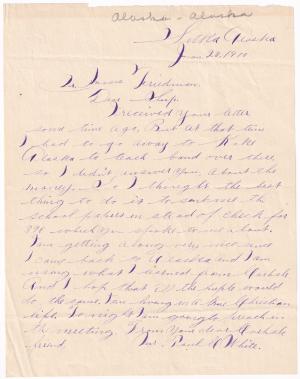 Alaska - Alaska
Sitka Alaska
Jan. 28, 1910
Friedman.
Dear Sup.
I received your letter
some time ago, But at that time
I had to go away to Kake
Alaska to teach band over there
so I didn't answer you about the
money. So I thought the best
thing to do is to sent with the
school papers instead of check for
which you spoke to me about.
I am getting along very nice and
I came back to Alaska and I am
using what I learned from Carlisle
And I hope that all the pupils would
do the same. I am living with true Christian
life. To night I am going to preach in
the meeting. From Your dear Carlisle
friend.
Mr. Paul White.